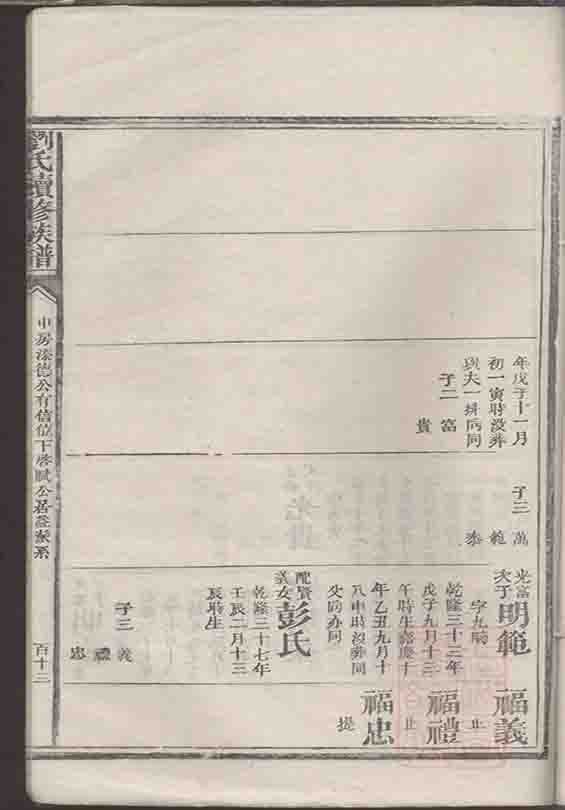 劉氏續修族譜
中房添德公有信位下啓賦公居
百十三
年戊子十一月
初一寅時没葬
與夫一排向同
子二 富
貴
子三 萬
範
泰
光富
次子
明範
字九疇
乾隆三十三年
戊子九月十三
午時生嘉慶十
年乙丑九月十
八申時没葬同
父向亦同
配賢
義女
彭氏
乾隆三十七年
壬辰二月十三
辰時生
子三 義
禮
忠
福義
止
福禮
止
福忠
提